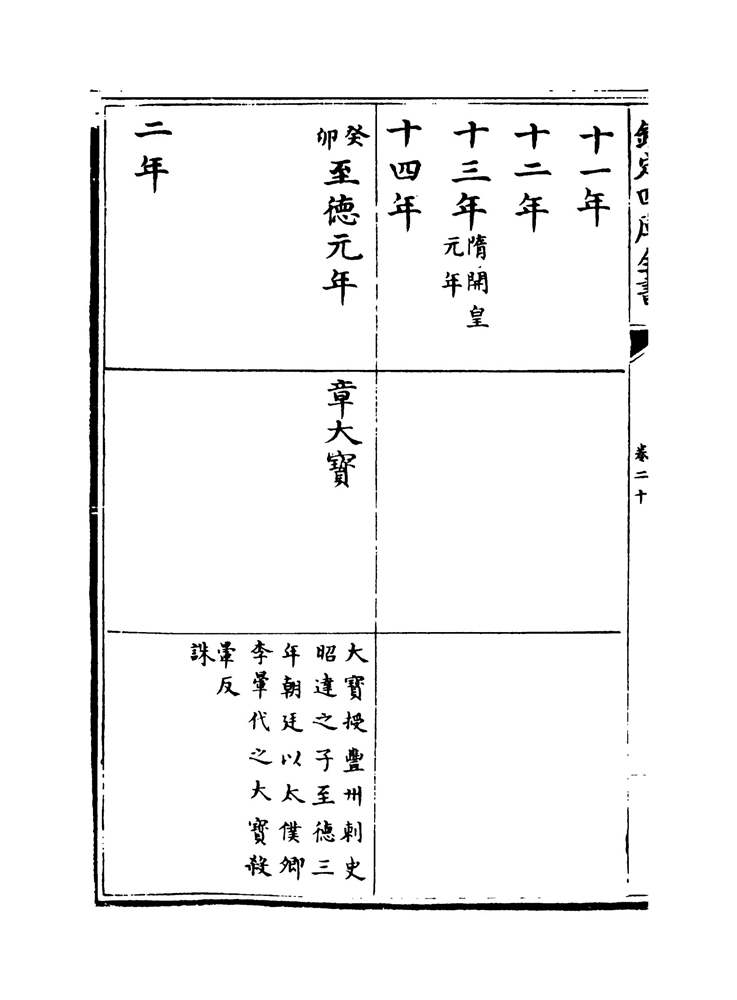 欽定四庫全書
卷二十
十一年
十二年
十三年隋開皇元年
十四年
癸卯至德元年
章大寳
大寳授豐州刺史
昭達之子至德三
年朝廷以太僕卿
李暈代之大寳殺
暈反
誅
二年